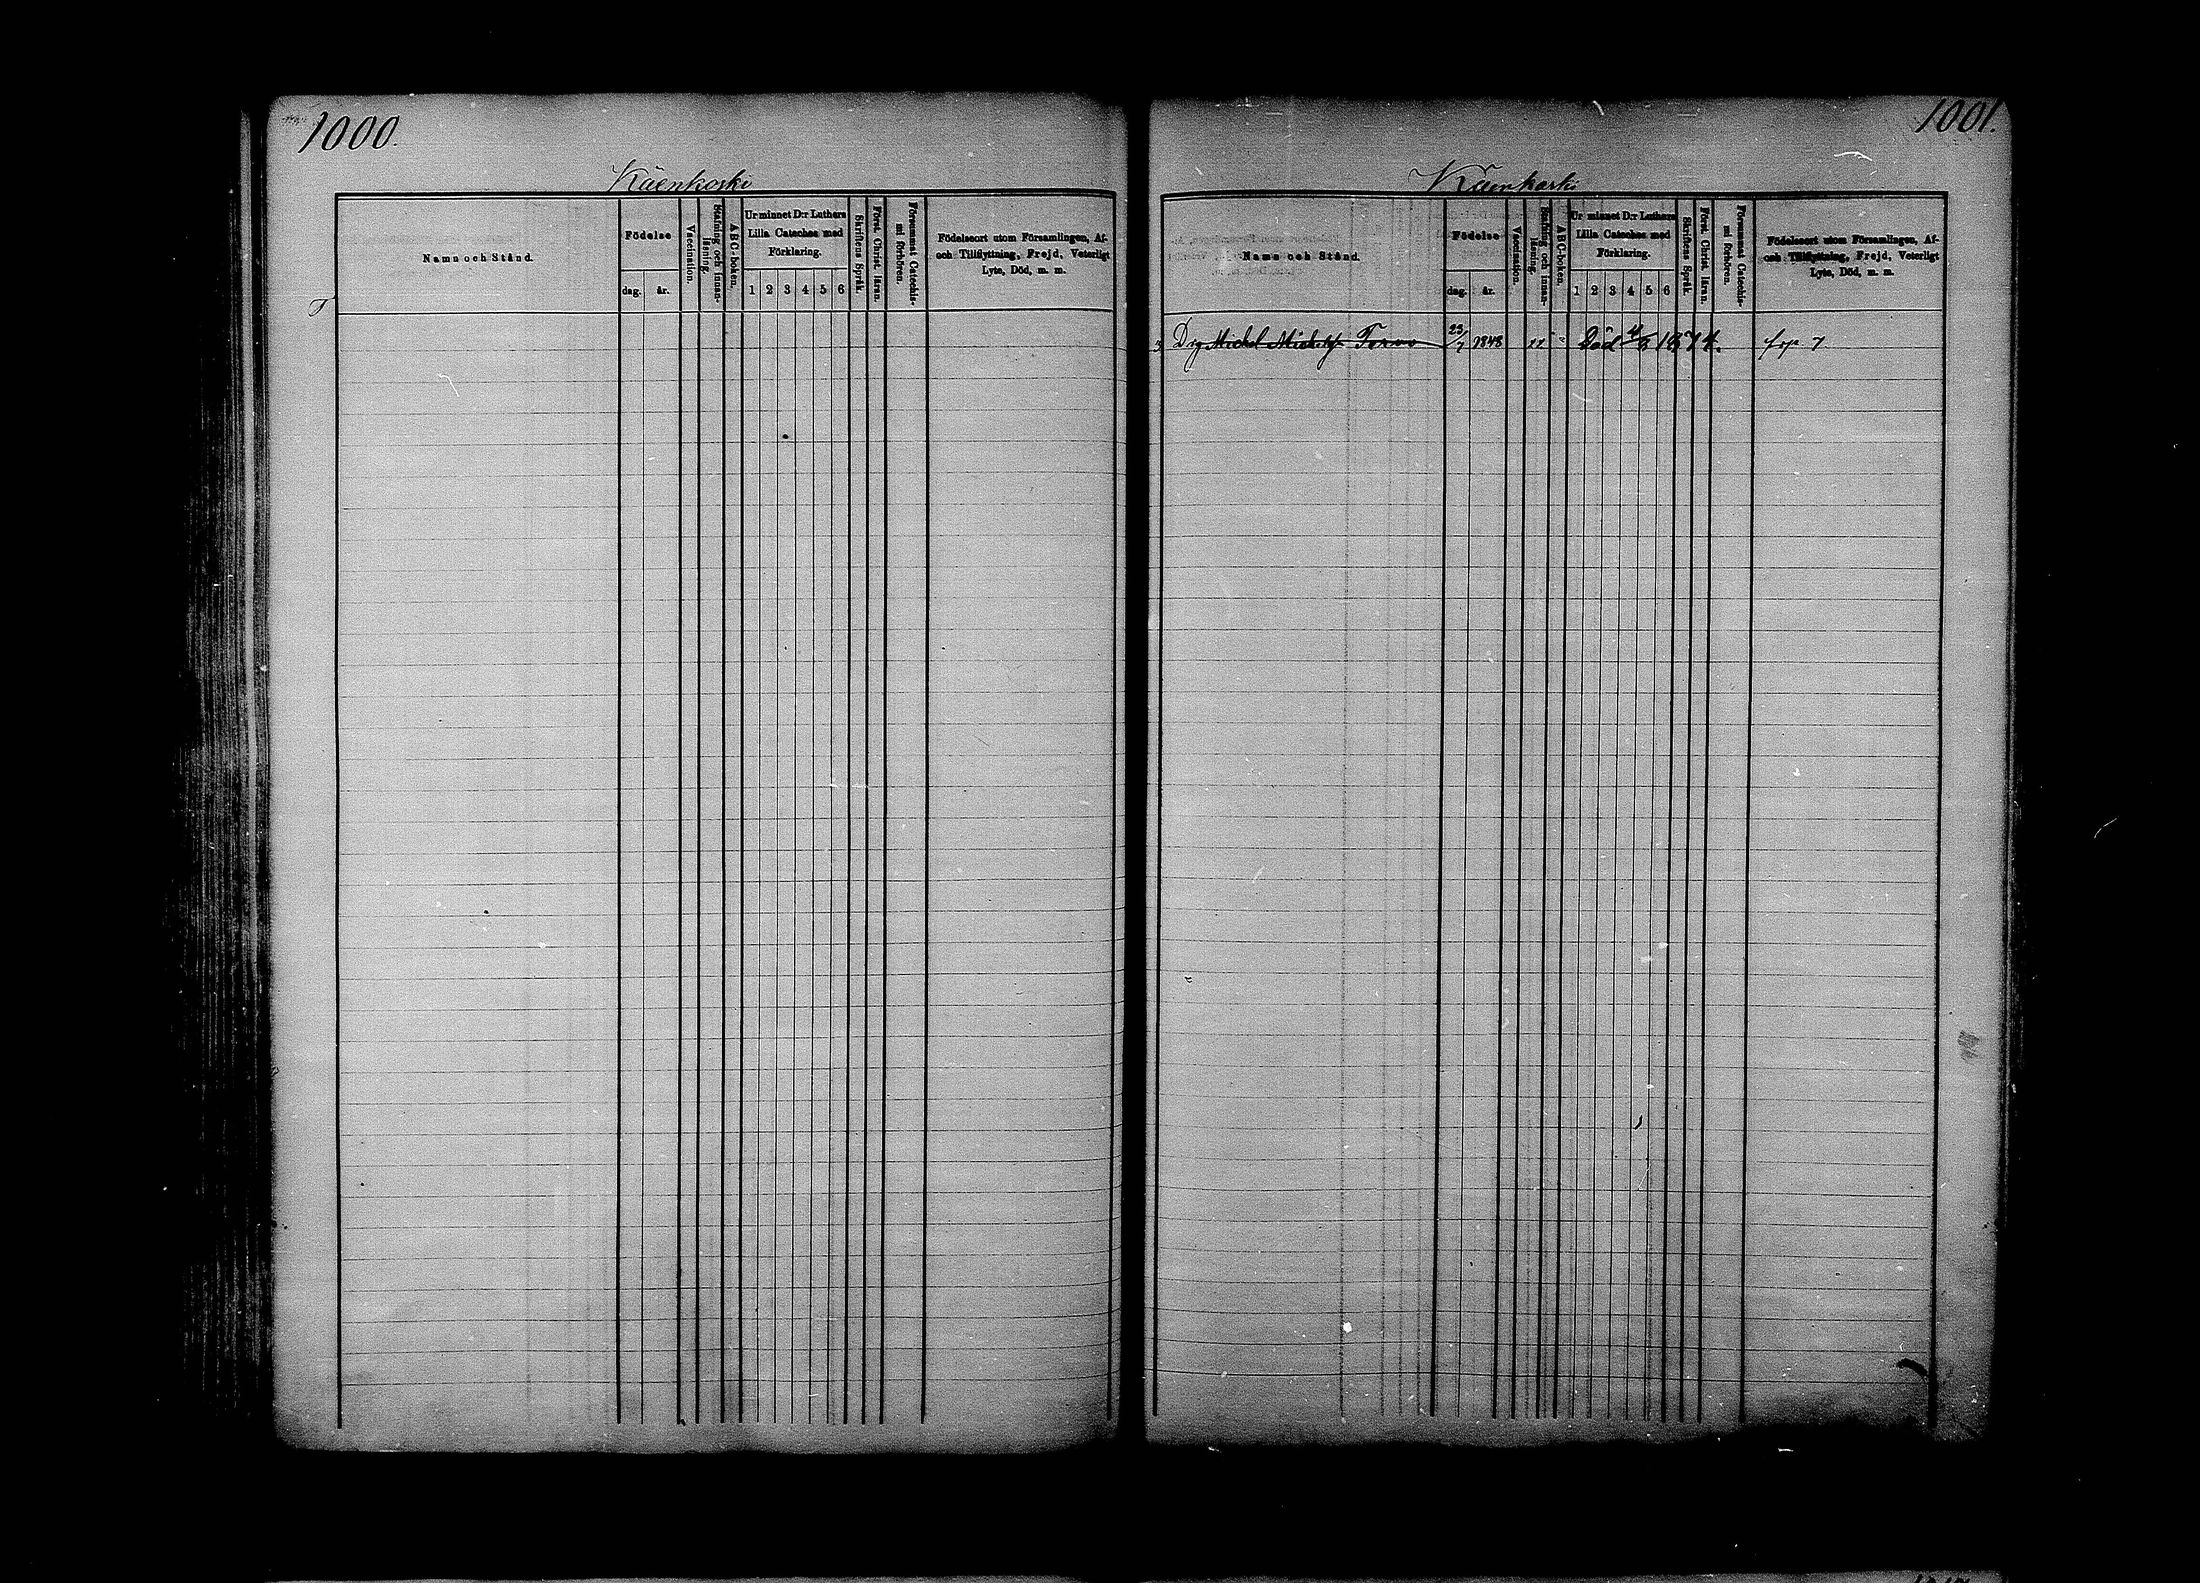 1000.
Käenkoski
Namn och Stånd.
Födelse
dag. år.
Vaccination.
Stafning och innan-
läsning.
ABC-boken.
Ur minnet D:r Luthers
Lilla Cateches med
Förklaring.
1 2 3 4 5 6
Skriftens Språk.
Först. Christ. läran.
Försummat Catechis-
mi förhören.
Födelseort utom Församlingen, Af-
och Tillflyttning, Frejd, Veterligt
Lyte, Död, m. m.
1001.
Käenkoski
Namn och Stånd.
Födelse
dag. år.
Vaccination.
Stafning och innan-
läsning.
ABC-boken.
Ur minnet D:r Luthers
Lilla Cateches med
Förklaring.
1 2 3 4 5 6
Skriftens Språk.
Först. Christ. läran.
Försummat Catechis-
mi förhören.
Födelseort utom Församlingen, Af-
och Tillflyttning, Frejd, Veterligt
Lyte, Död, m. m.
Drg Michel Michelsp Tervo 23/7 1848 Död 1874.